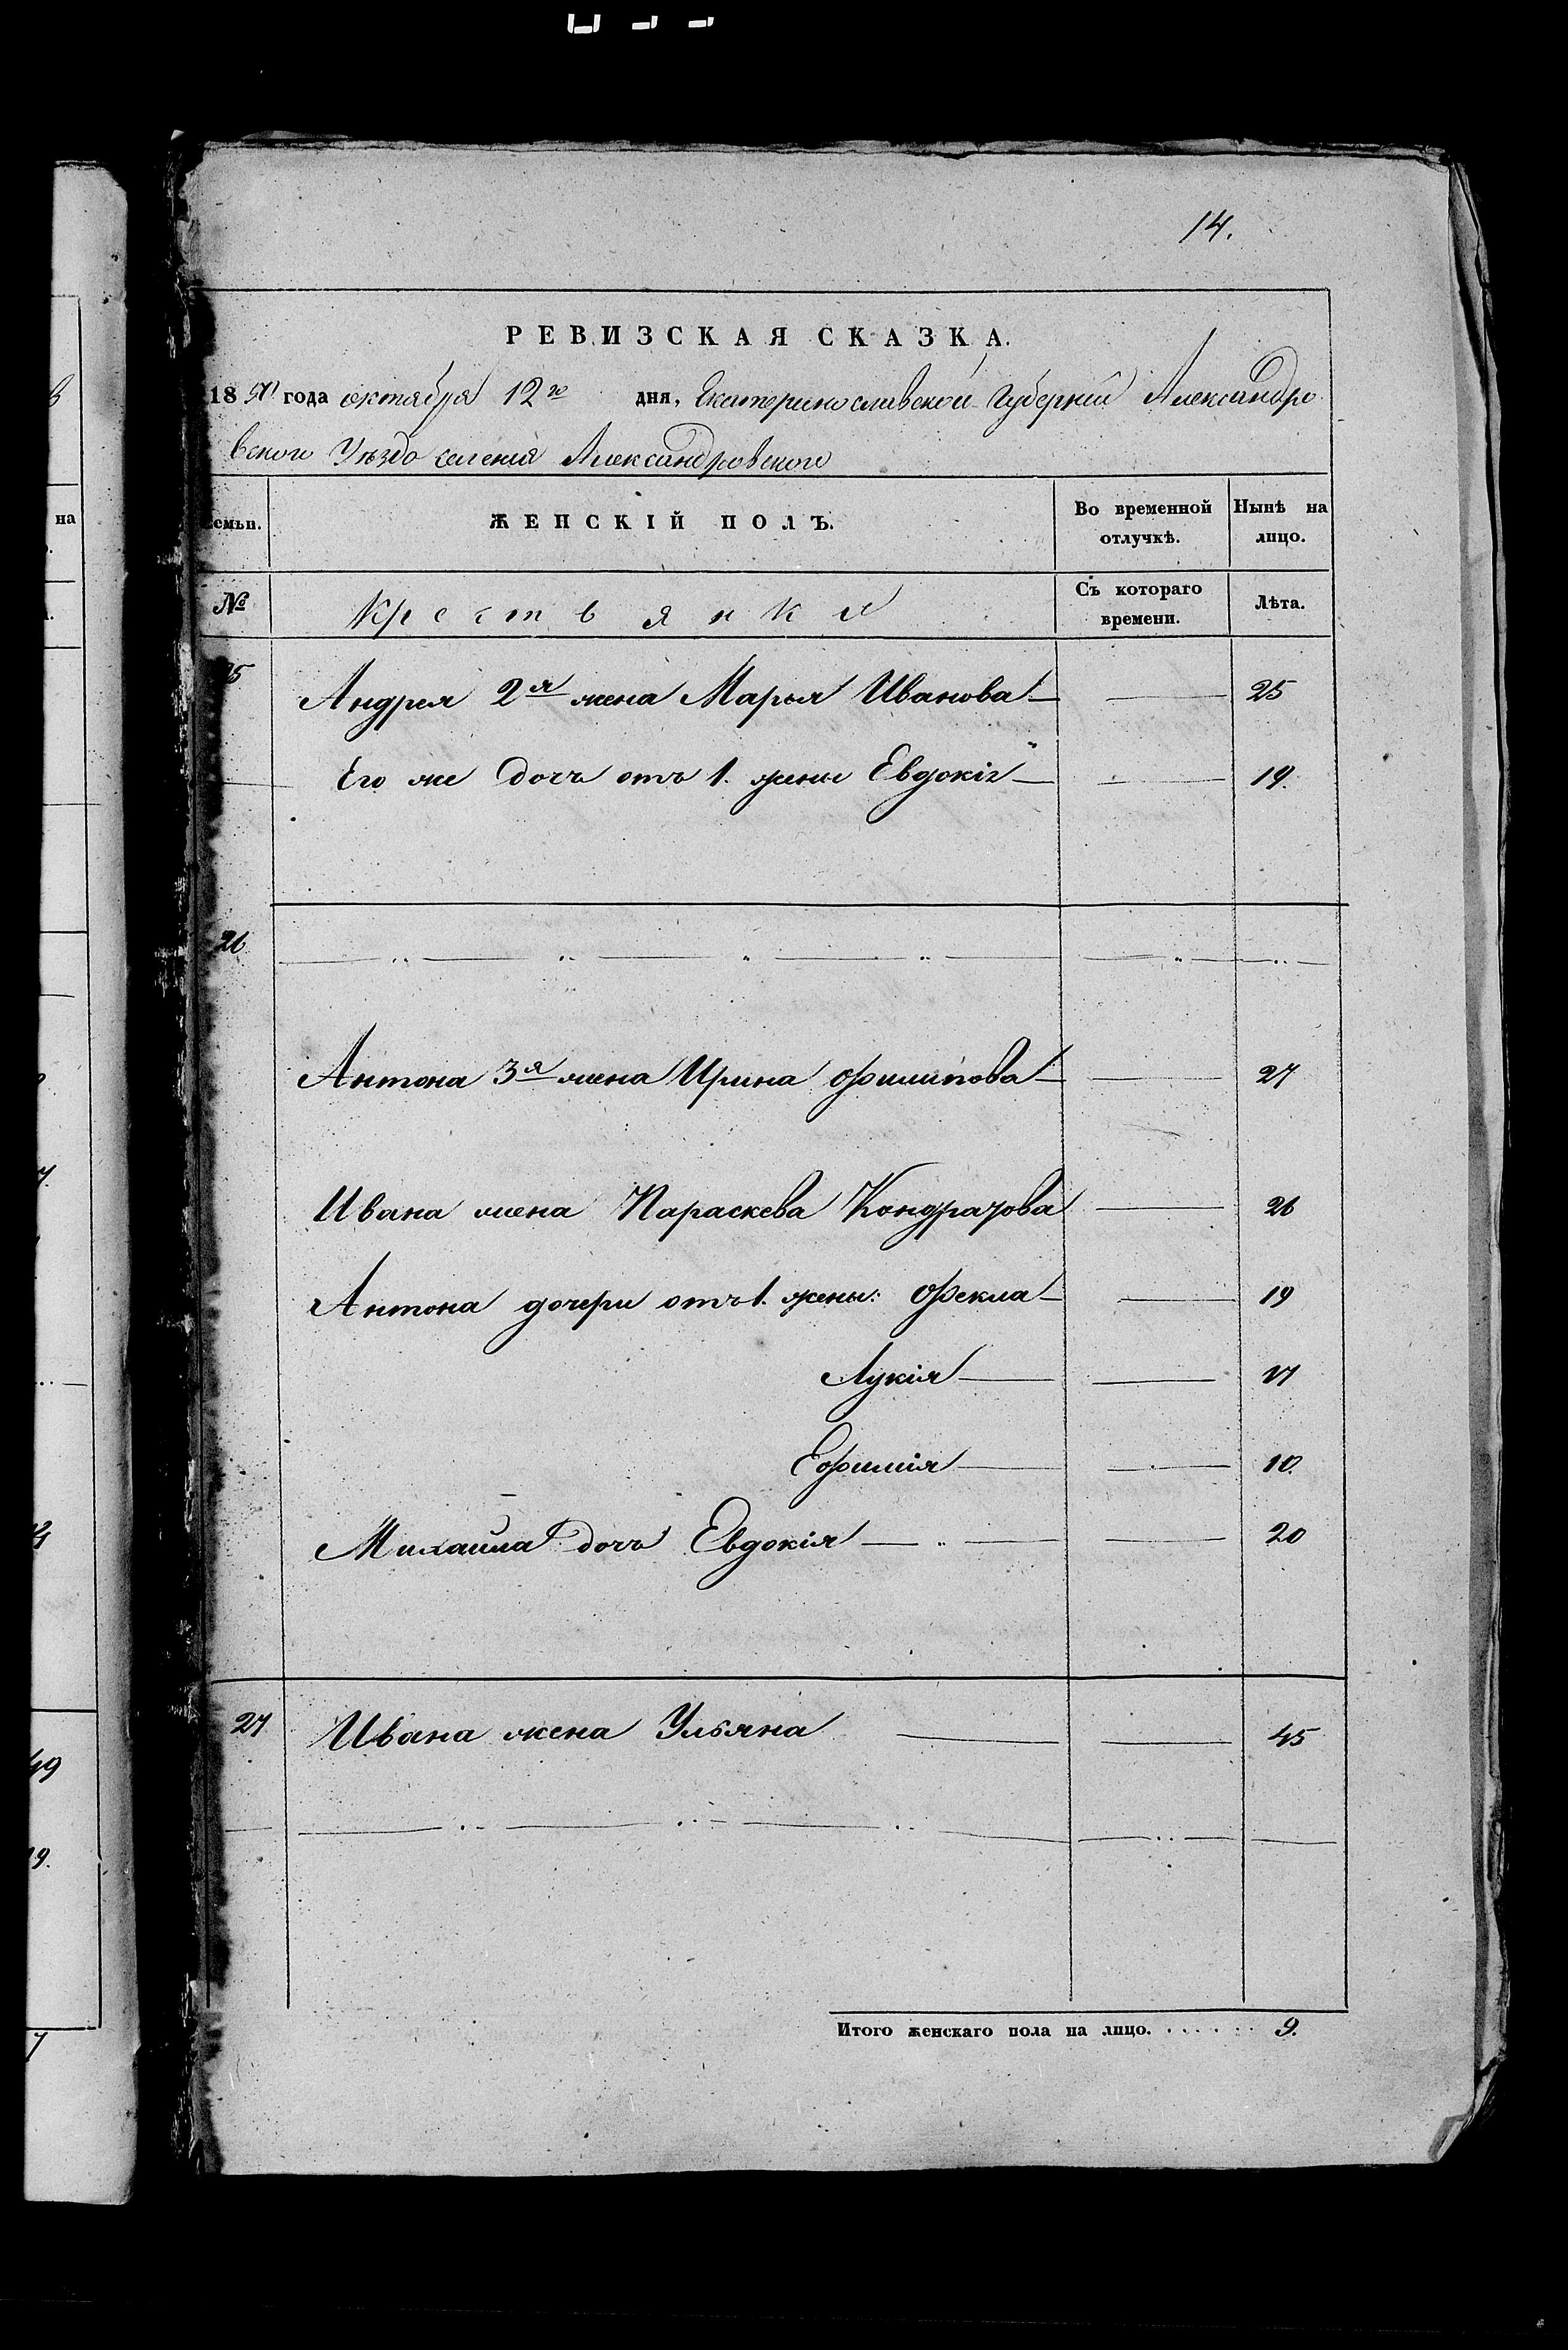 14.
РЕВИЗСКАЯ СКАЗКА.
1850 года октября 12го дня, Екатеринославской Губерніи Александро
вского Уѣзда селенія Александровского
семьи. ЖЕНСКІЙ ПОЛЪ. Во временной отлучкѣ. Нынѣ на лицо.
№ Крестьянки Съ котораго времени. Лѣта.
25 Андрея 2я жена Марья Иванова — — 25
Его же дочь отъ 1. жены Евдокія — — 19.
26
Антона 3я жена Ирина Филипова — — 27
Ивана жена Параскева Кондратова — 26
Антона дочери отъ 1. жены: Фекла — — 19
Лукія — — 17
Ефимія — — 10.
Михаила дочь Евдокія — — 20
27 Ивана жена Ульяна — — 45
Итого женскаго пола на лицо. . . . . . . 9.